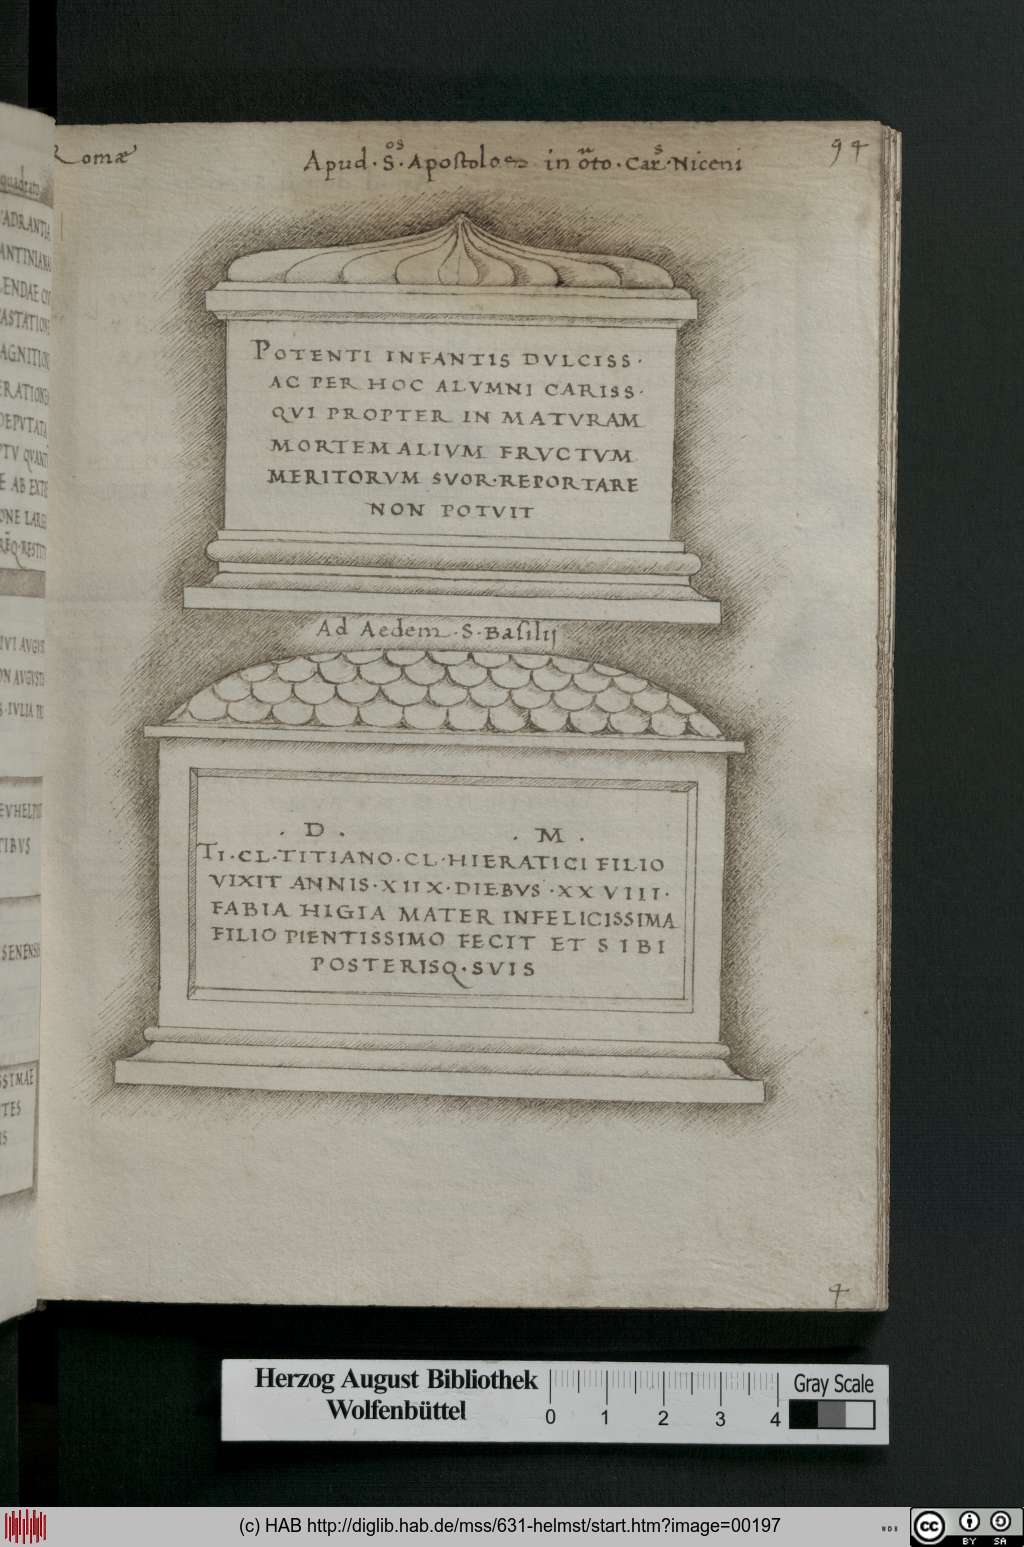 Romæ
Apud · S̃ᵒˢ · Apostolos in
94
POTENTI INFANTIS DVLCISS ·
AC PER HOC ALVMNI CARISS ·
QVI PROPTER IN MATVRAM
MORTEM ALIVM FRVCTVM
MERITORVM SVOR · REPORTARE
NON POTVIT
Ad Aedem · S · Basilij
· D · · M ·
TI · CL · TITIANO · CL · HIERATICI FILIO
VIXIT ANNIS · XIIX · DIEBVS · XXVIII ·
FABIA HIGIA MATER INFELICISSIMA
FILIO PIENTISSIMO FECIT ET SIBI
POSTERISQ · SVIS
4
quadrato
ADRANTIA
ANTINIANA
LENDAE
ASTATIONE
AGNITION
ERATIONE
DEPVTATA
PTV QVANTI
E AB EXTE
ONE
RESTIT
IVI AVGVST
ON AVGVSTI
S · IVLIA
EVHELPI
TIBVS
SENENSI
SSIMAE
TES
IS
Herzog August Bibliothek
Wolfenbüttel
0 1 2 3 4
Gray Scale
(c) HAB http://diglib.hab.de/mss/631-helmst/start.htm?image=00197
WDB
cc BY SA